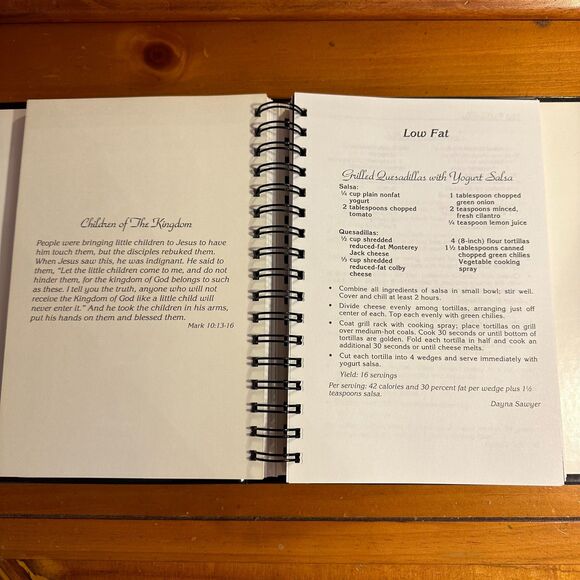 Children of The Kingdom
People were bringing little children to Jesus to have
him touch them, but the disciples rebuked them.
When Jesus saw this, he was indignant. He said to
them, “Let the little children come to me, and do not
hinder them, for the kingdom of God belongs to such
as these. I tell you the truth, anyone who will not
receive the Kingdom of God like a little child will
never enter it.” And he took the children in his arms,
put his hands on them and blessed them.
Mark 10:13-16
Low Fat
Grilled Quesadillas with Yogurt Salsa
Salsa:
¼ cup plain nonfat
yogurt
2 tablespoons chopped
tomato
1 tablespoon chopped
green onion
2 teaspoons minced,
fresh cilantro
¼ teaspoon lemon juice
Quesadillas:
½ cup shredded
reduced-fat Monterey
Jack cheese
⅓ cup shredded
reduced-fat colby
cheese
4 (8-inch) flour tortillas
1½ tablespoons canned
chopped green chilies
Vegetable cooking
spray
• Combine all ingredients of salsa in small bowl; stir well.
Cover and chill at least 2 hours.
• Divide cheese evenly among tortillas, arranging just off
center of each. Top each evenly with green chilies.
• Coat grill rack with cooking spray; place tortillas on grill
over medium-hot coals. Cook 30 seconds or until bottom
of tortillas are golden. Fold each tortilla in half and cook an
additional 30 seconds or until cheese melts.
• Cut each tortilla into 4 wedges and serve immediately with
yogurt salsa.
Yield: 16 servings
Per serving: 42 calories and 30 percent fat per wedge plus 1½
teaspoons salsa.
Dayna Sawyer